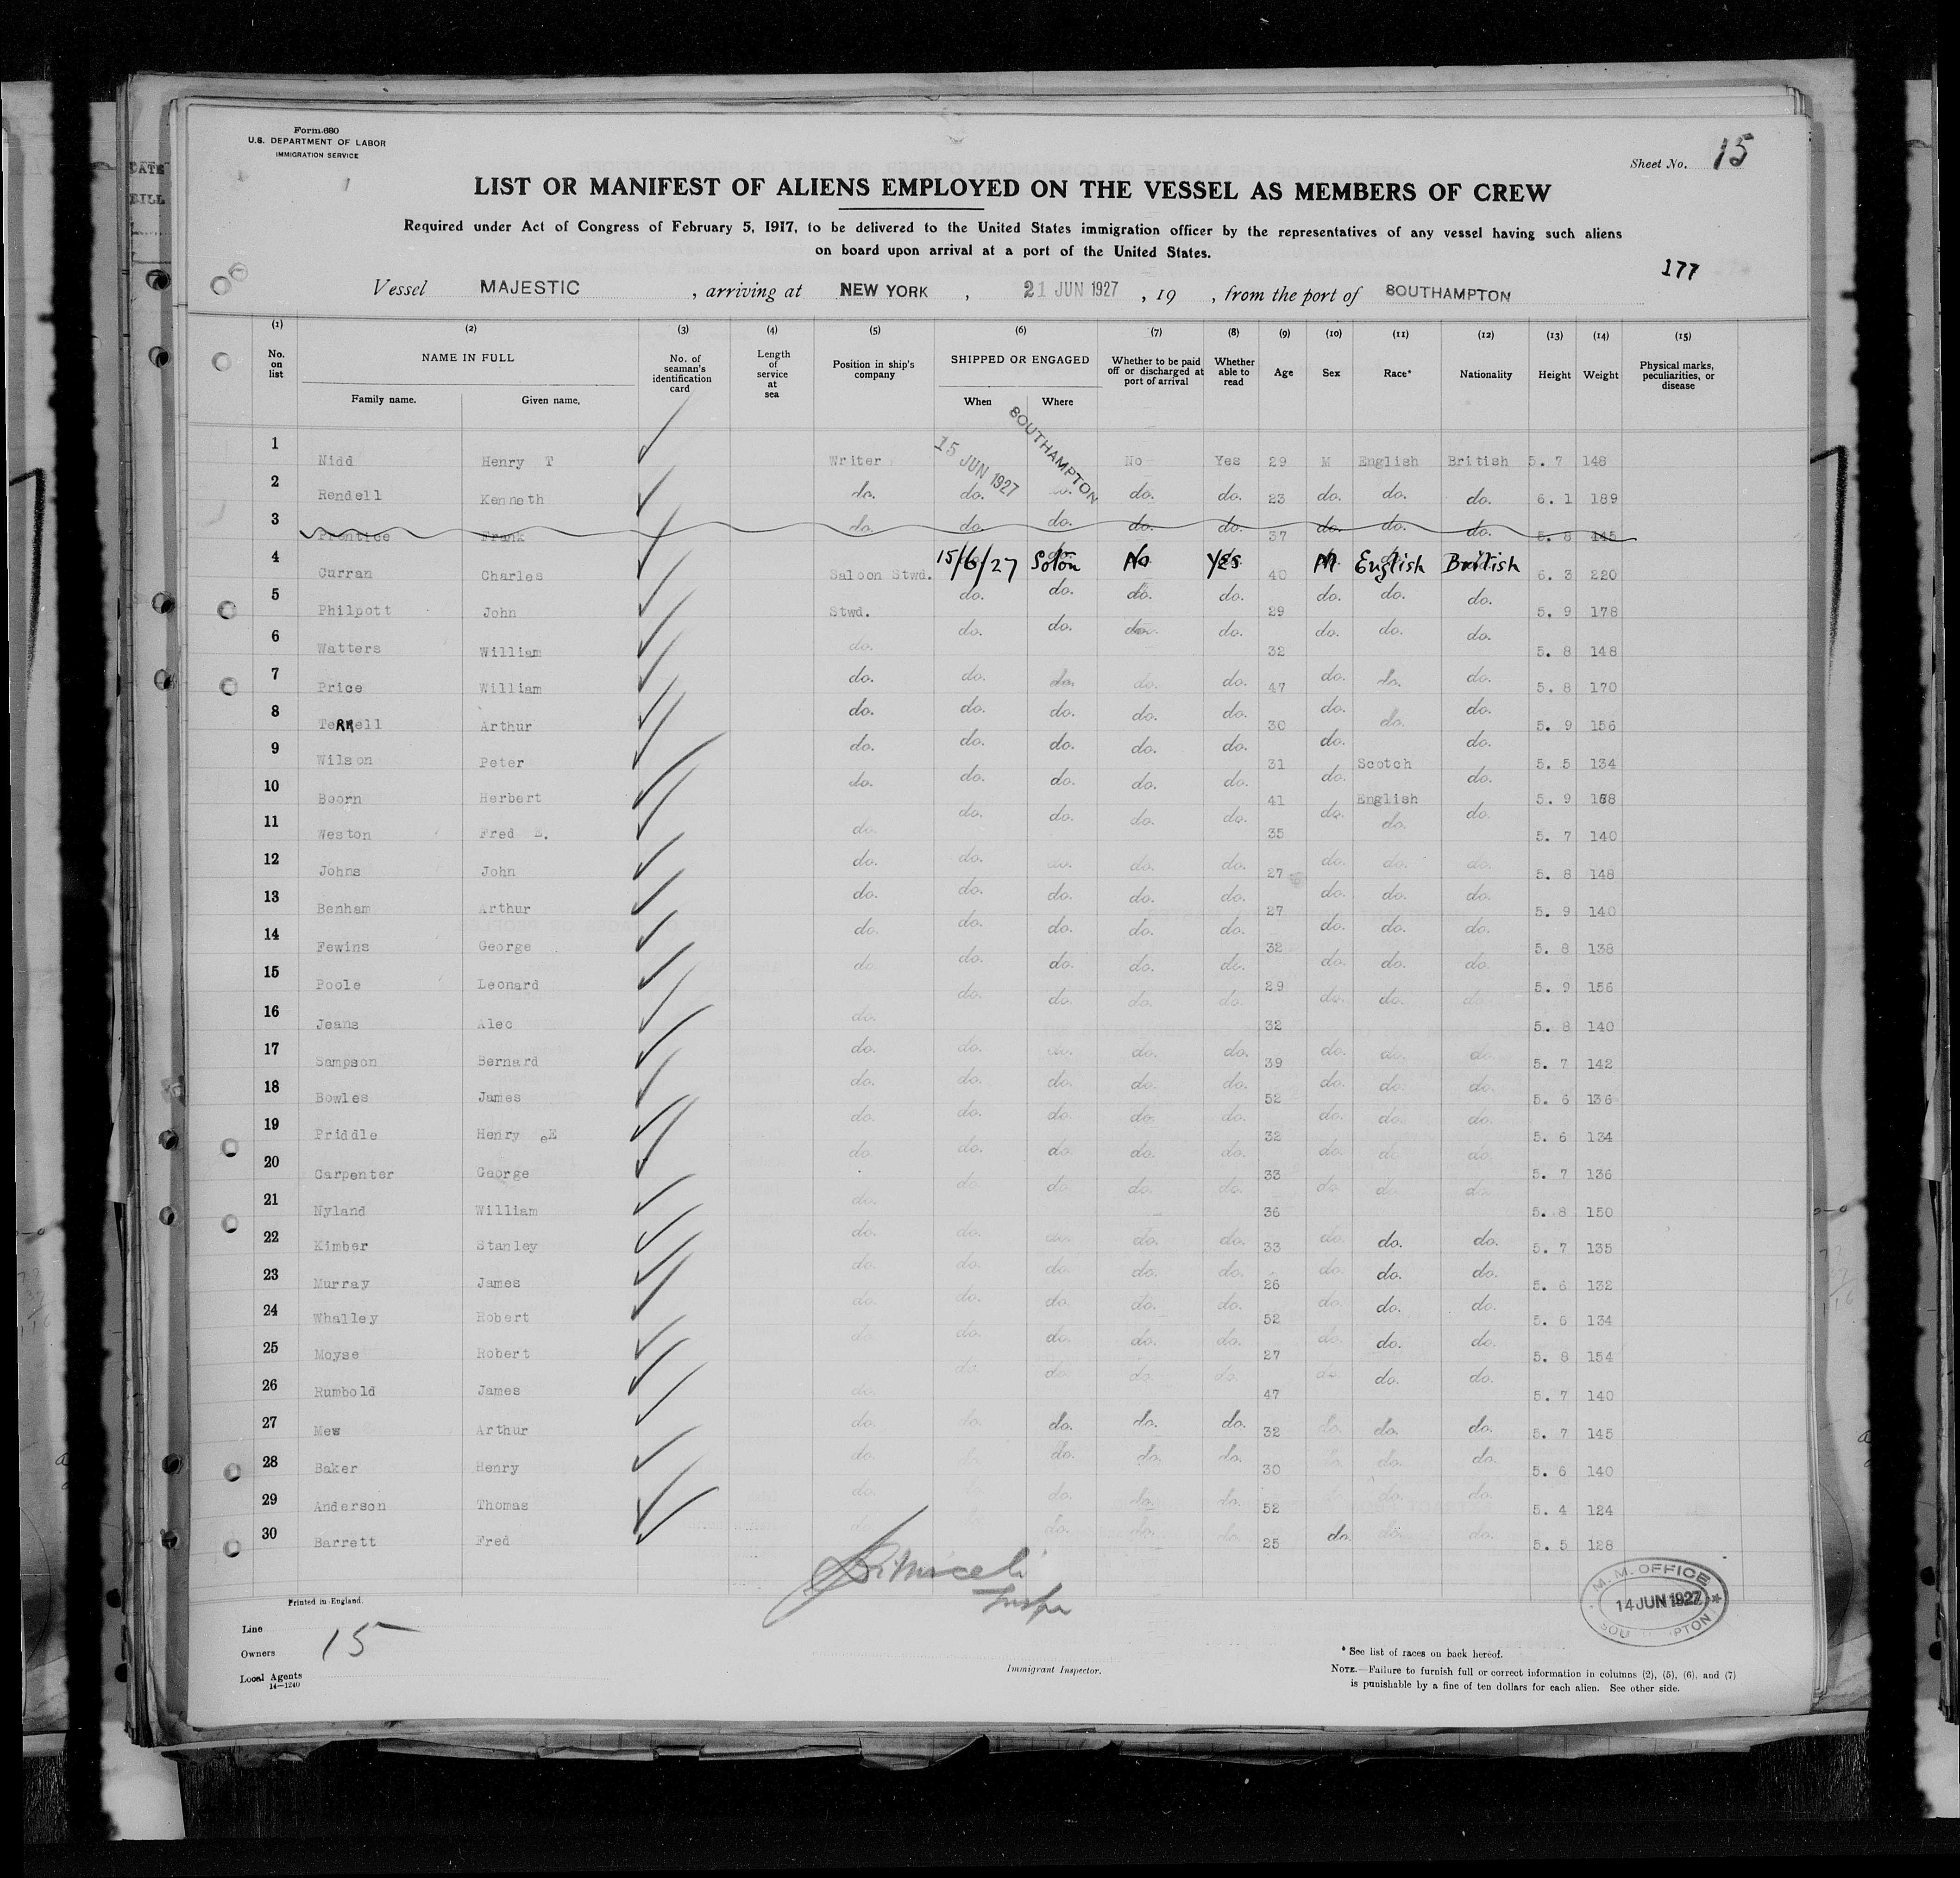 Form 680
U.S. DEPARTMENT OF LABOR
IMMIGRATION SERVICE
Sheet No. 15
LIST OR MANIFEST OF ALIENS EMPLOYED ON THE VESSEL AS MEMBERS OF CREW
Required under Act of Congress of February 5, 1917, to be delivered to the United States immigration officer by the representatives of any vessel having such aliens
on board upon arrival at a port of the United States.
177
Vessel MAJESTIC , arriving at NEW YORK , 21 JUN 1927 , 19 , from the port of SOUTHAMPTON
(1) (2) (3) (4) (5) (6) (7) (8) (9) (10) (11) (12) (13) (14) (15)
No. on list NAME IN FULL Family name. Given name. No. of seaman's identification card Length of service at sea Position in ship's company SHIPPED OR ENGAGED When Where Whether to be paid off or discharged at port of arrival Whether able to read Age Sex Race* Nationality Height Weight Physical marks, peculiarities, or disease
1 Nidd Henry T Writer 15 JUN 1927 SOUTHAMPTON No Yes 29 M English British 5. 7 148
2 Rendell Kenneth do. do. do. do. do. 23 do. do. do. 6. 1 189
3 Prentice Frank do. do. do. do. do. 37 do. do. do. 5. 8 145
4 Curran Charles Saloon Stwd. 15/6/27 Soton No Yes 40 M English British 6. 3 220
5 Philpott John Stwd. do. do. do. do. 29 do. do. do. 5. 9 178
6 Watters William do. do. do. do. do. 32 do. do. do. 5. 8 148
7 Price William do. do. do. do. do. 47 do. do. do. 5. 8 170
8 TeRRell Arthur do. do. do. do. do. 30 do. do. do. 5. 9 156
9 Wilson Peter do. do. do. do. do. 31 do. Scotch do. 5. 5 134
10 Boorn Herbert do. do. do. do. do. 41 do. English do. 5. 9
11 Weston Fred E. do. do. do. do. do. 35 do. do. do. 5. 7 140
12 Johns John do. do. do. do. do. 27 do. do. do. 5. 8 148
13 Benham Arthur do. do. do. do. do. 27 do. do. do. 5. 9 140
14 Fewins George do. do. do. do. do. 32 do. do. do. 5. 8 138
15 Poole Leonard do. do. do. do. do. 29 do. do. do. 5. 9 156
16 Jeans Alec do. do. do. do. do. 32 do. do. do. 5. 8 140
17 Sampson Bernard do. do. do. do. do. 39 do. do. do. 5. 7 142
18 Bowles James do. do. do. do. do. 52 do. do. do. 5. 6 136
19 Priddle Henry E do. do. do. do. do. 32 do. do. do. 5. 6 134
20 Carpenter George do. do. do. do. do. 33 do. do. do. 5. 7 136
21 Nyland William do. do. do. do. do. 36 do. do. do. 5. 8 150
22 Kimber Stanley do. do. do. do. do. 33 do. do. do. 5. 7 135
23 Murray James do. do. do. do. do. 26 do. do. do. 5. 6 132
24 Whalley Robert do. do. do. do. do. 52 do. do. do. 5. 6 134
25 Moyse Robert do. do. do. do. do. 27 do. do. do. 5. 8 154
26 Rumbold James do. do. do. do. do. 47 do. do. do. 5. 7 140
27 Mew Arthur do. do. do. do. do. 32 do. do. do. 5. 7 145
28 Baker Henry do. do. do. do. 30 do. do. do. 5. 6 140
29 Anderson Thomas do. do. do. do. 52 do. do. do. 5. 4 124
30 Barrett Fred do. do. do. do. 25 do. do. do. 5. 5 128
M. M. OFFICE
14 JUN 1927
Printed in England.
Line
Owners 15
Local Agents
14—1240
Immigrant Inspector.
* See list of races on back hereof.
NOTE.—Failure to furnish full or correct information in columns (2), (5), (6), and (7)
is punishable by a fine of ten dollars for each alien. See other side.